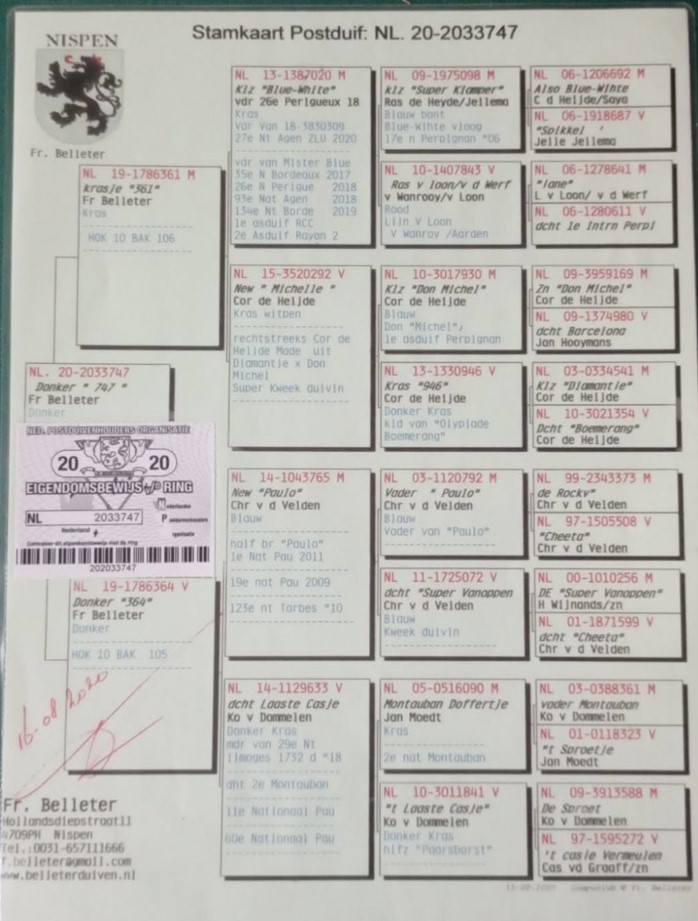 Stamkaart Postduif: NL. 20-2033747
NISPEN
Fr. Belleter
NL 19-1786361 M
krasje "361"
Fr Belleter
Kras
HOK 10 BAK 106
NL. 20-2033747
Donker " 747 "
Fr Belleter
Donker
NED. POSTDUIVENHOUDERS ORGANISATIE
20 20
EIGENDOMSBEWIJS RING
NL 2033747
Nederland
202033747
NL 19-1786364 V
Donker "364"
Fr Belleter
Donker
HOK 10 BAK 105
16-08-2020
Fr. Belleter
Hollandsdiepstraat11
4709PH Nispen
Tel.:0031-657111666
f.belleter@gmail.com
www.belleterduiven.nl
NL 13-1387020 M
Klz "Blue-White"
vdr 26e Perigueux 18
Kras
Vdr Van 18-3830309
27e Nt Agen ZLU 2020
vdr van Mister Blue
35e N Bordeaux 2017
26e N Perigue 2018
93e Nat Agen 2018
134e Nt Borde 2019
1e asduif RCC
2e Asduif Rayon 2
NL 15-3520292 V
New " Michelle "
Cor de Heijde
Kras witpen
rechtstreeks Cor de
Heijde Made uit
Diamantje x Don
Michel
Super Kweek duivin
NL 14-1043765 M
New "Paulo"
Chr v d Velden
Blauw
half br "Paulo"
1e Nat Pau 2011
19e nat Pau 2009
123e nt Tarbes "10
NL 14-1129633 V
dcht Laaste Casje
Ko v Dommelen
Donker Kras
mdr van 29e Nt
limoges 1732 d "18
dht 2e Montauban
11e Nationaal Pau
60e Nationaal Pau
NL 09-1975098 M
klz "Super Klamper"
Ras de Heyde/Jellema
Blauw bont
Blue-Wihte vloog
17e n Perpignan "06
NL 10-1407843 V
Ras v loon/v d Werf
v Wanrooy/v Loon
Rood
Lijn v Loon
V Wanroy /Aarden
NL 10-3017930 M
Klz "Don Michel"
Cor de Heijde
Blauw
Don "Michel",
1e asduif Perpignan
NL 13-1330946 V
Kras "946"
Cor de Heijde
Donker Kras
kld van "Olypiade
Boemerang"
NL 03-1120792 M
Vader " Paulo"
Chr v d Velden
Blauw
Vader van "Paulo"
NL 11-1725072 V
dcht "Super Vanoppen
Chr v d Velden
Blauw
Kweek duivin
NL 05-0516090 M
Montauban Doffertje
Jan Moedt
Kras
2e nat Montauban
NL 10-3011841 V
"t Laaste Casje"
Ko v Dommelen
Donker Kras
hlfz "Paarsborst"
NL 06-1206692 M
Also Blue-Wihte
C d Heijde/Saya
NL 06-1918687 V
"Spikkel '
Jelle Jellema
NL 06-1278641 M
"lane"
L v Loon/ v d Werf
NL 06-1280611 V
dcht 1e Intrn Perpi
NL 09-3959169 M
Zn "Don Michel"
Cor de Heijde
NL 09-1374980 V
dcht Barcelona
Jan Hooymans
NL 03-0334541 M
Klz "Diamantje"
Cor de Heijde
NL 10-3021354 V
Dcht "Boemerang"
Cor de Heijde
NL 99-2343373 M
de Rocky"
Chr v d Velden
NL 97-1505508 V
"Cheeta"
Chr v d Velden
NL 00-1010256 M
DE "Super Vanoppen"
H Wijnands/zn
NL 01-1871599 V
dcht "Cheeta"
Chr v d Velden
NL 03-0388361 M
vader Montauban
Ko v Dommelen
NL 01-0118323 V
"t Sproetje
Jan Moedt
NL 09-3913588 M
De Sproet
Ko v Dommelen
NL 97-1595272 V
't casje Vermeulen
Cas vd Graaff/zn
Compuclub © Fr. Belleter